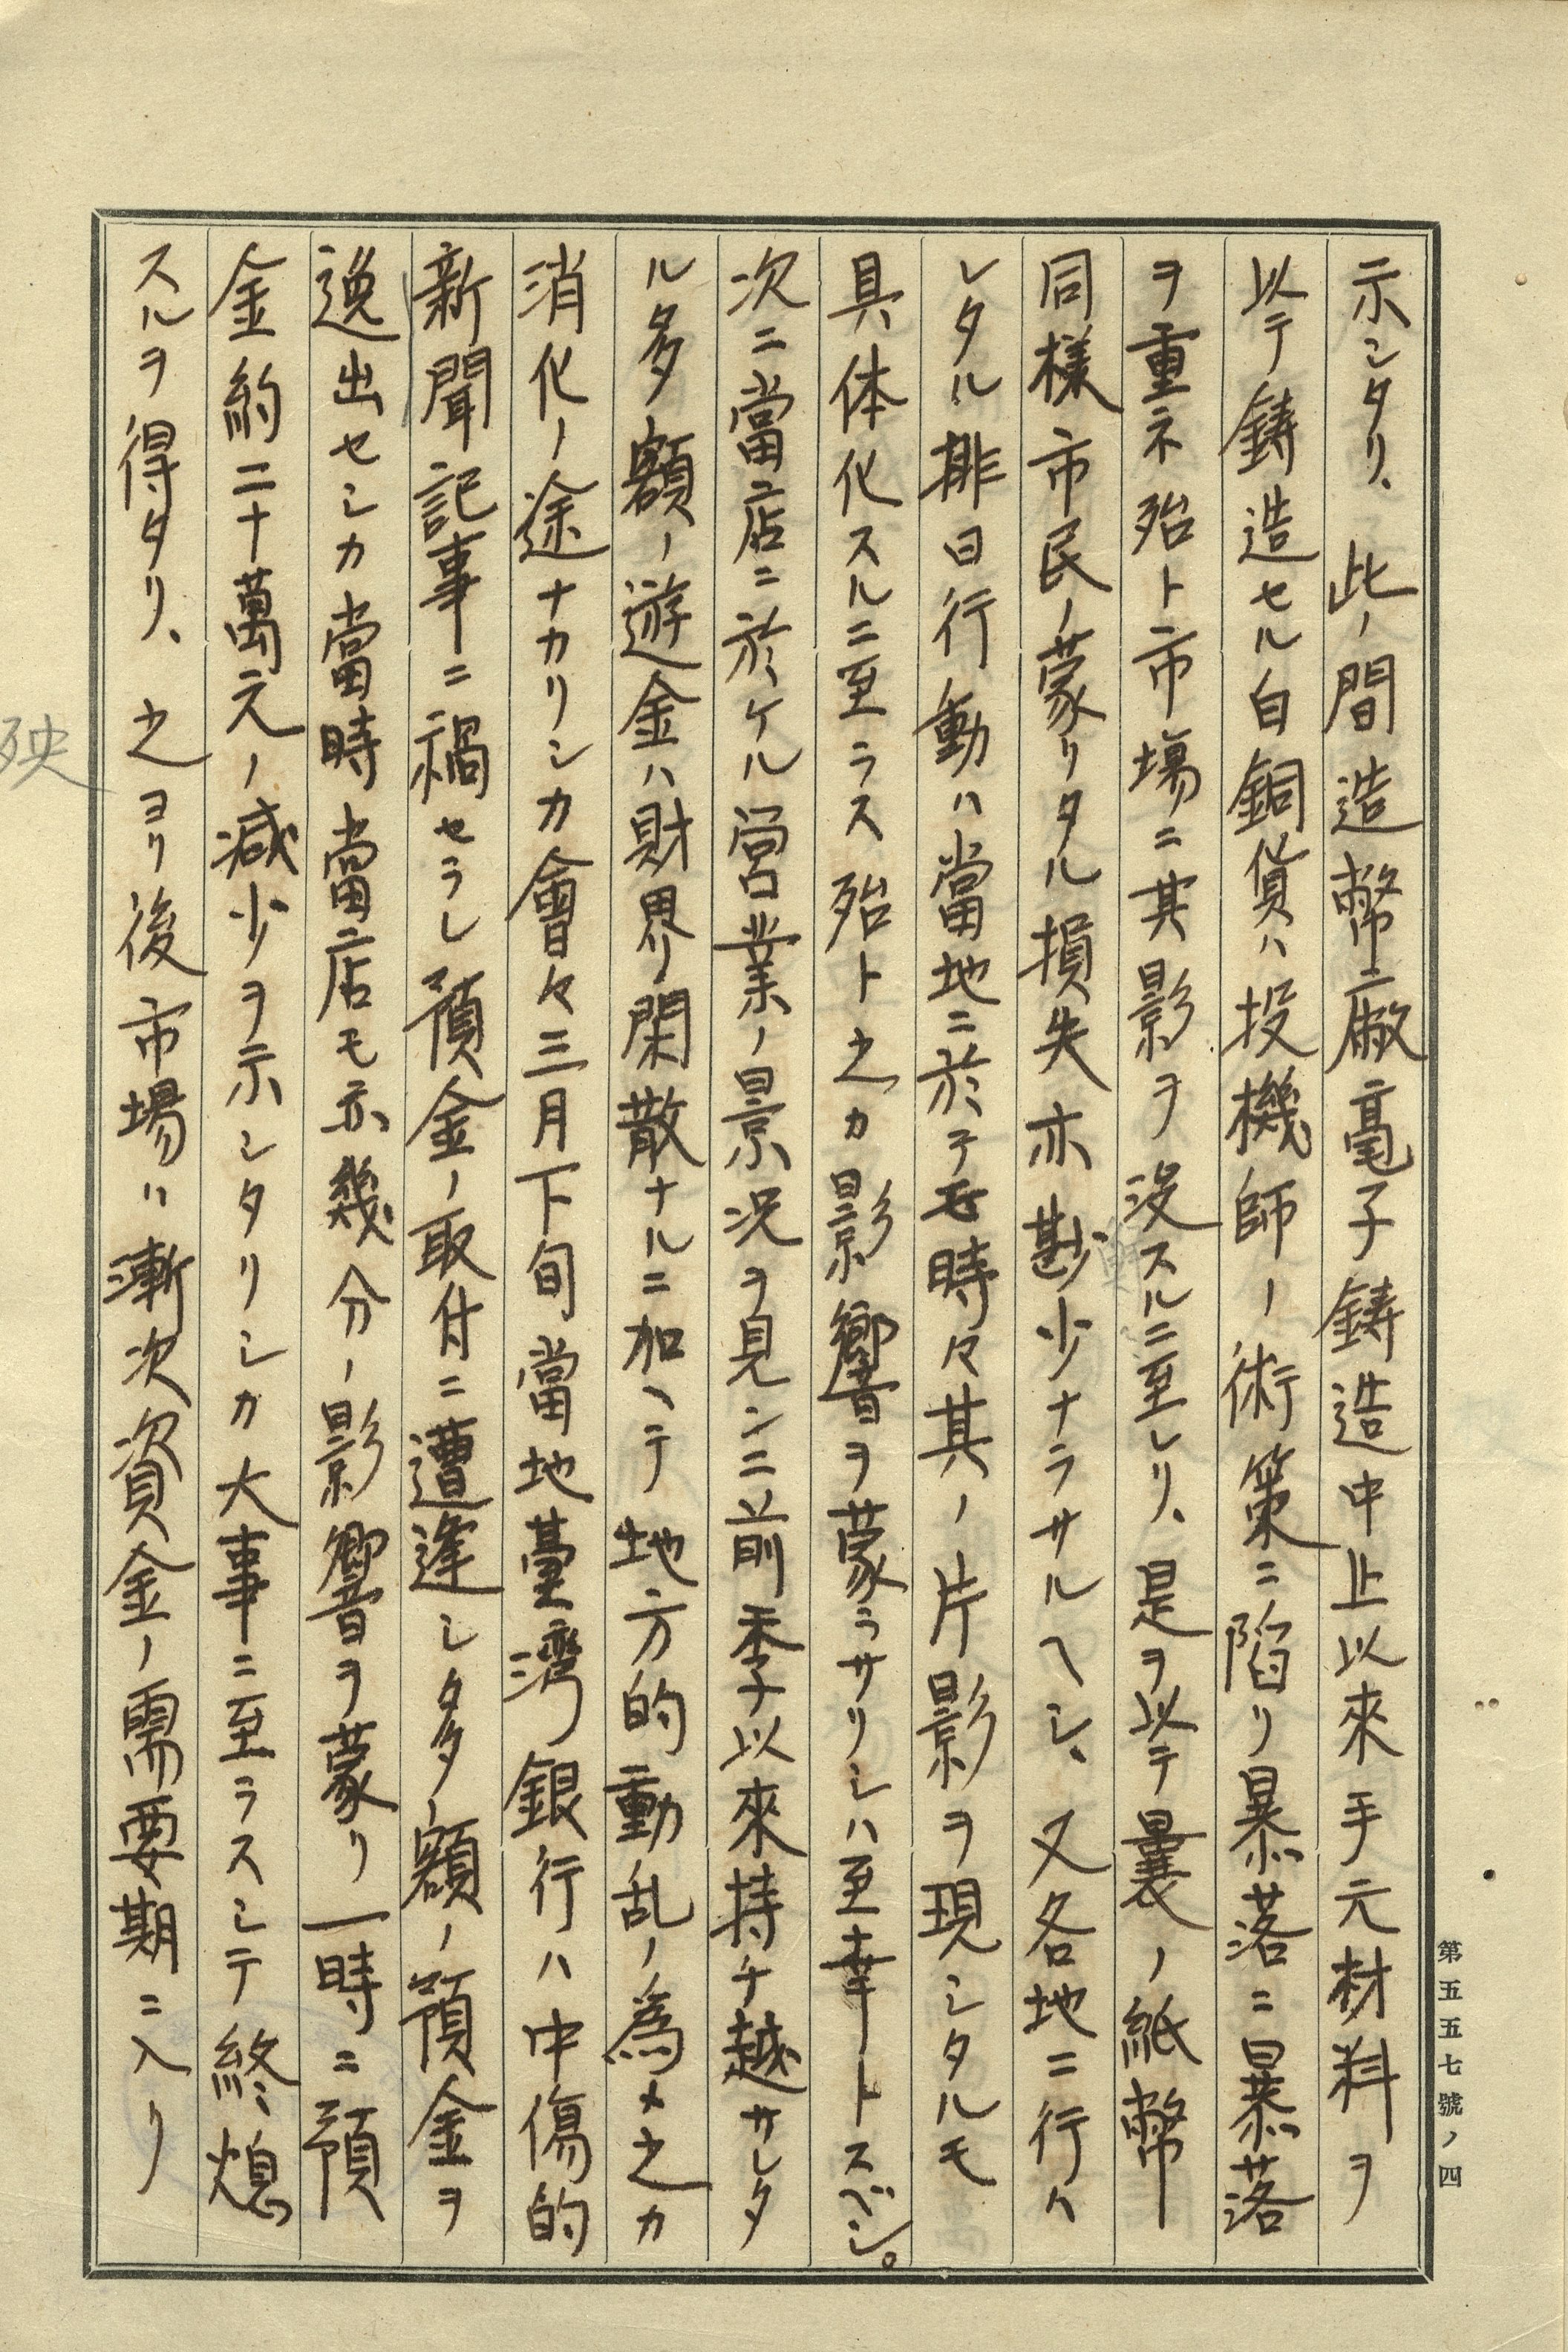 示シタリ、此ノ間造幣廠毫子鋳造中止以來手元材料ヲ
以テ鋳造セル白銅貨ハ投機師ノ術策ニ陷リ暴落ニ暴落
ヲ重ネ殆ト市場ニ其影ヲ没スルニ至レリ、是ヲ以テ曩ノ紙幣
同様市民ノ蒙リタル損失亦尠少ナラサルヘシ、又各地ニ行ハ
レタル排日行動ハ當地ニ於テモ時々其ノ片影ヲ現シタルモ
具体化スルニ至ラス殆ト之カ影響ヲ蒙ラサリシハ至幸トスベシ。
次ニ當店ニ於ケル営業ノ景況ヲ見ンニ前季以來持チ越サレタ
ル多額ノ遊金ハ財界ノ閑散ナルニ加ヘテ地方的動乱ノ為メ之カ
消化ノ途ナカリシカ會々三月下旬當地臺湾銀行ハ中傷的
新聞記事ニ禍セラレ預金ノ取付ニ遭逢シ多額ノ預金ヲ
逸出セシカ當時當店モ亦幾分ノ影響ヲ蒙リ一時ニ預
金約二十萬元ノ減少ヲ示シタリシカ大事ニ至ラスシテ終熄
スルヲ得タリ、之ヨリ後市場ハ漸次資金ノ需要期ニ入リ
殃
第五五七號ノ四